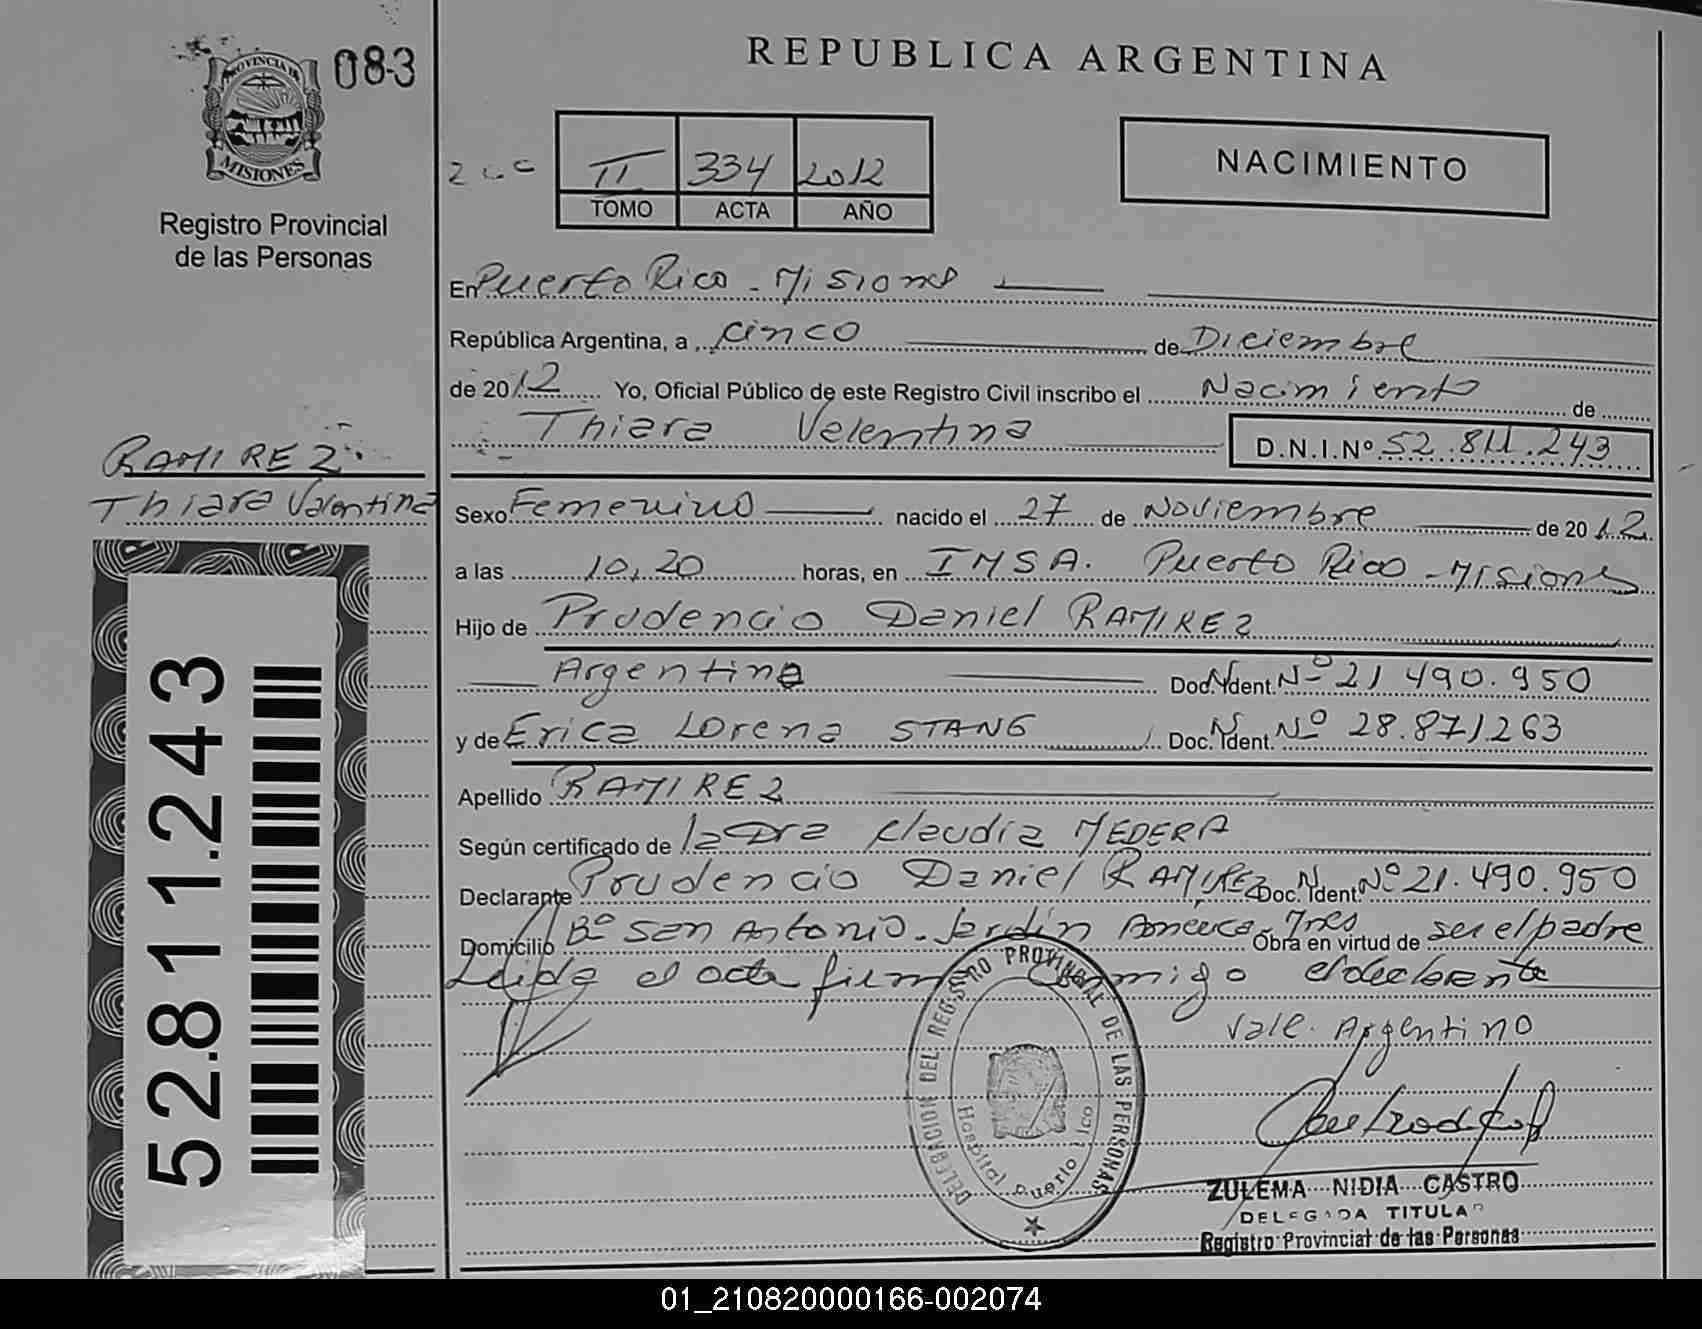 083
PROVINCIA DE
MISIONES
Registro Provincial
de las Personas
REPUBLICA ARGENTINA
II 334 2012
TOMO ACTA AÑO
NACIMIENTO
En Puerto Rico - Misiones
República Argentina, a cinco de Diciembre
de 2012 Yo, Oficial Público de este Registro Civil inscribo el Nacimiento de
Thiara Valentina D.N.I.Nº 52.811.243
RAMIREZ
Thiara Valentina
Sexo Femenino nacido el 27 de Noviembre de 2012
a las 10,20 horas, en IMSA. Puerto Rico - Misiones
Hijo de Prudencio Daniel RAMIREZ
Argentina Doc. Ident. Nº 21 490.950
y de Erica Lorena STANG Doc. Ident. Nº 28.871263
Apellido RAMIREZ
Según certificado de la Dra Claudia MEDERA
Declarante Prudencio Daniel RAMIREZ Doc. Ident. Nº 21.490.950
Domicilio Bº San Antonio - Jardín America - Mnes Obra en virtud de ser el padre
Leida el acta firma conmigo el declarante
Vale. Argentino
52.811.243
DELEGACION DEL REGISTRO PROVINCIAL DE LAS PERSONAS
Hospital Puerto Rico
ZULEMA NIDIA CASTRO
DELEGADA TITULAR
Registro Provincial de las Personas
01_210820000166-002074